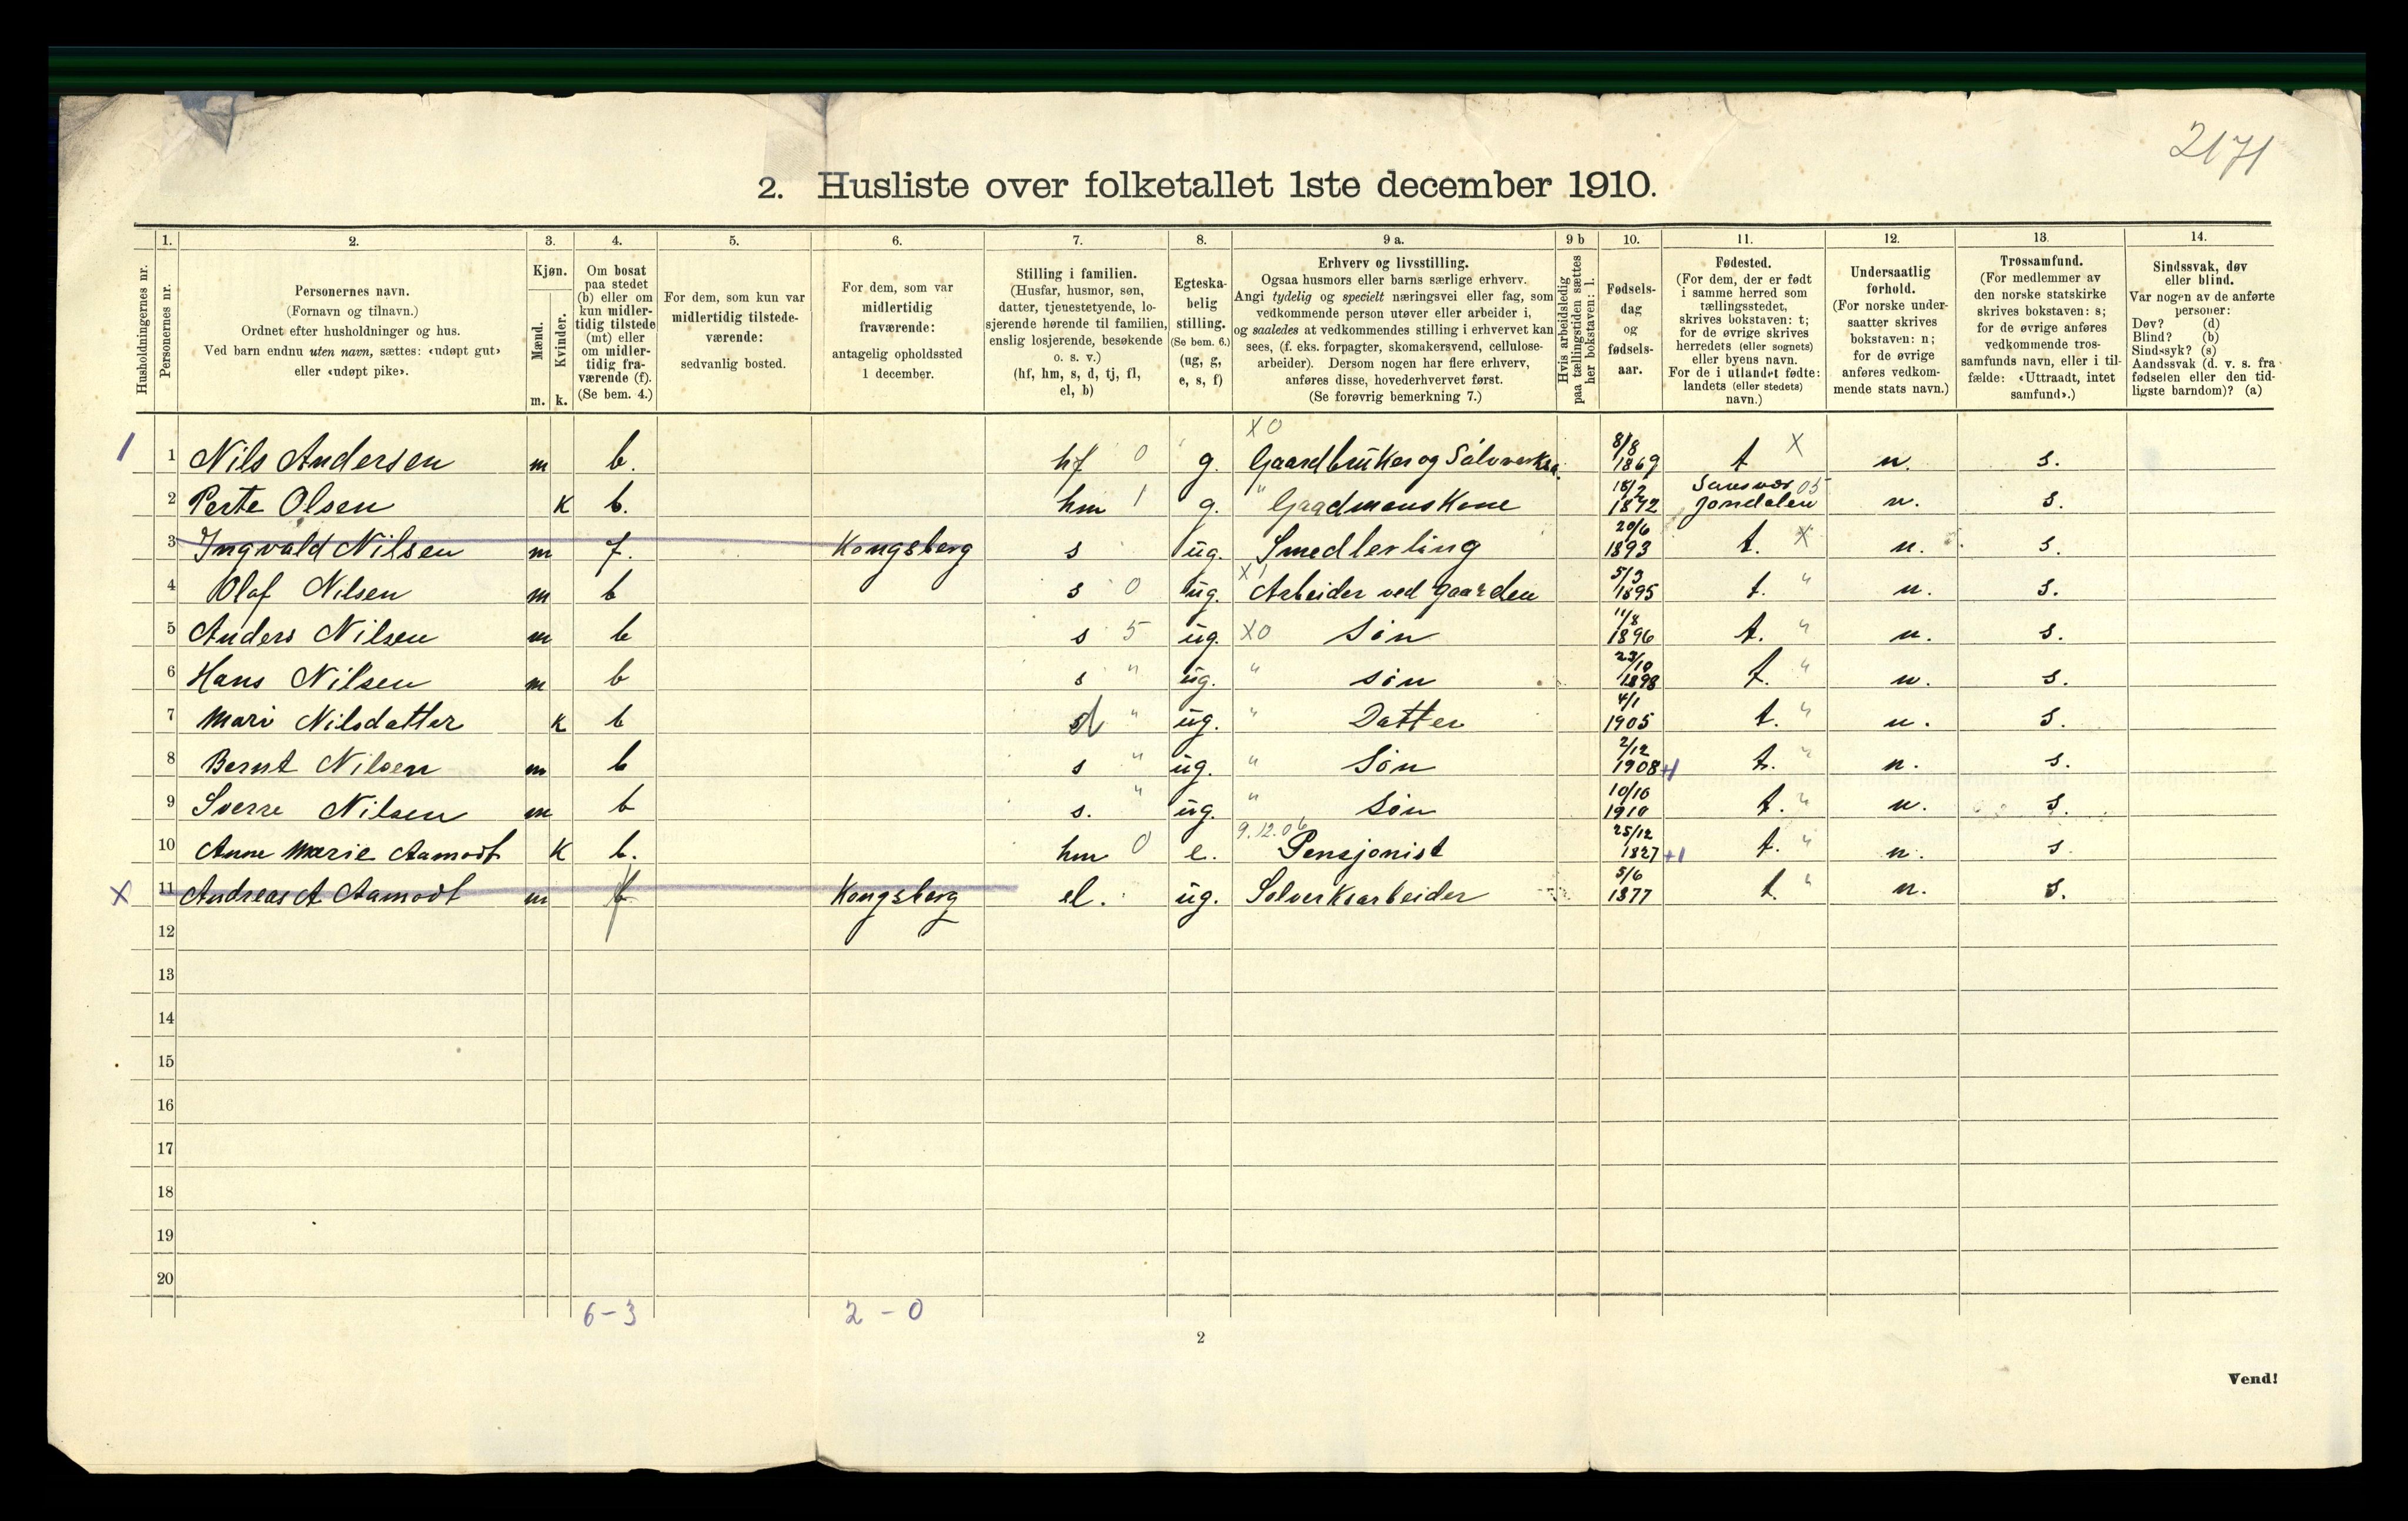 2171
2. Husliste over folketallet 1ste december 1910.
1. 2. 3. 4. 5. 6. 7. 8. 9 a. 9 b 10. 11. 12. 13. 14.
Husholdningernes nr.
Personernes nr.
Personernes navn.
(Fornavn og tilnavn.)
Ordnet efter husholdninger og hus.
Ved barn endnu uten navn, sættes: «udøpt gut»
eller «udøpt pike».
Kjøn.
Mænd.
Kvinder.
m. k.
Om bosat
paa stedet
(b) eller om
kun midler-
tidig tilstede
(mt) eller
om midler-
tidig fra-
værende (f).
(Se bem. 4.)
For dem, som kun var
midlertidig tilstede-
værende:
sedvanlig bosted.
For dem, som var
midlertidig
fraværende:
antagelig opholdssted
1 december.
Stilling i familien.
(Husfar, husmor, søn,
datter, tjenestetyende, lo-
sjerende hørende til familien,
enslig losjerende, besøkende
o. s. v.)
(hf, hm, s, d, tj, fl,
el, b)
Egteska-
belig
stilling.
(Se bem. 6.)
(ug, g,
e, s, f)
Erhverv og livsstilling.
Ogsaa husmors eller barns særlige erhverv.
Angi tydelig og specielt næringsvei eller fag, som
vedkommende person utøver eller arbeider i,
og saaledes at vedkommendes stilling i erhvervet kan
sees, (f. eks. forpagter, skomakersvend, cellulose-
arbeider). Dersom nogen har flere erhverv,
anføres disse, hovederhvervet først.
(Se forøvrig bemerkning 7.)
Hvis arbeidsledig
paa tællingstiden sættes
her bokstaven: l.
Fødsels-
dag
og
fødsels-
aar.
Fødested.
(For dem, der er født
i samme herred som
tællingsstedet,
skrives bokstaven: t;
for de øvrige skrives
herredets (eller sognets)
eller byens navn.
For de i utlandet fødte:
landets (eller stedets)
navn.)
Undersaatlig
forhold.
(For norske under-
saatter skrives
bokstaven: n;
for de øvrige
anføres vedkom-
mende stats navn.)
Trossamfund.
(For medlemmer av
den norske statskirke
skrives bokstaven: s;
for de øvrige anføres
vedkommende tros-
samfunds navn, eller i til-
fælde: «Uttraadt, intet
samfund».)
Sindssvak, døv
eller blind.
Var nogen av de anførte
personer:
Døv? (d)
Blind? (b)
Sindssyk? (s)
Aandssvak (d. v. s. fra
fødselen eller den tid-
ligste barndom)? (a)
X 0
1 1 Nils Andersen m b. hf 0 g. Gaardbruker og Sølvverksa. 8/8 1869 t X n. s.
2 Perte Olsen K b. hm 1 g. " Gaadmanskone 18/2 1872 Sansvær 05 Jondalen n. s.
3 Ingvald Nilsen m f. Kongsberg s ug. Smedlerling 20/6 1893 t. X n. s.
4 Olaf Nilsen m b s 0 ug. X 1 Arbeider ved gaarden 5/3 1895 t. " n. s.
5 Anders Nilsen m b s 5 ug. X0 Søn 11/8 1896 t. " n. s.
6 Hans Nilsen m b s " ug. " søn 23/10 1898 t. " n. s.
7 Mari Nilsdatter K b d " ug. " Datter 4/1 1905 t. " n. s.
8 Bernt Nilsen m b s " ug. " Søn 2/12 1908 +1 t. " n. s.
9 Sverre Nilsen m b s. " ug. " Søn 10/10 1910 t. " n. s.
10 Anne Marie Aamodt K b. hm 0 e. 9.12.06 Pensjonist 25/12 1827 +1 t. " n. s
X 11 Andreas A Aamodt m f Kongsberg el. ug. Solverksarbeider 5/6 1877 t. " n. s.
12
13
14
15
16
17
18
19
20
6-3 2-0
2
Vend!